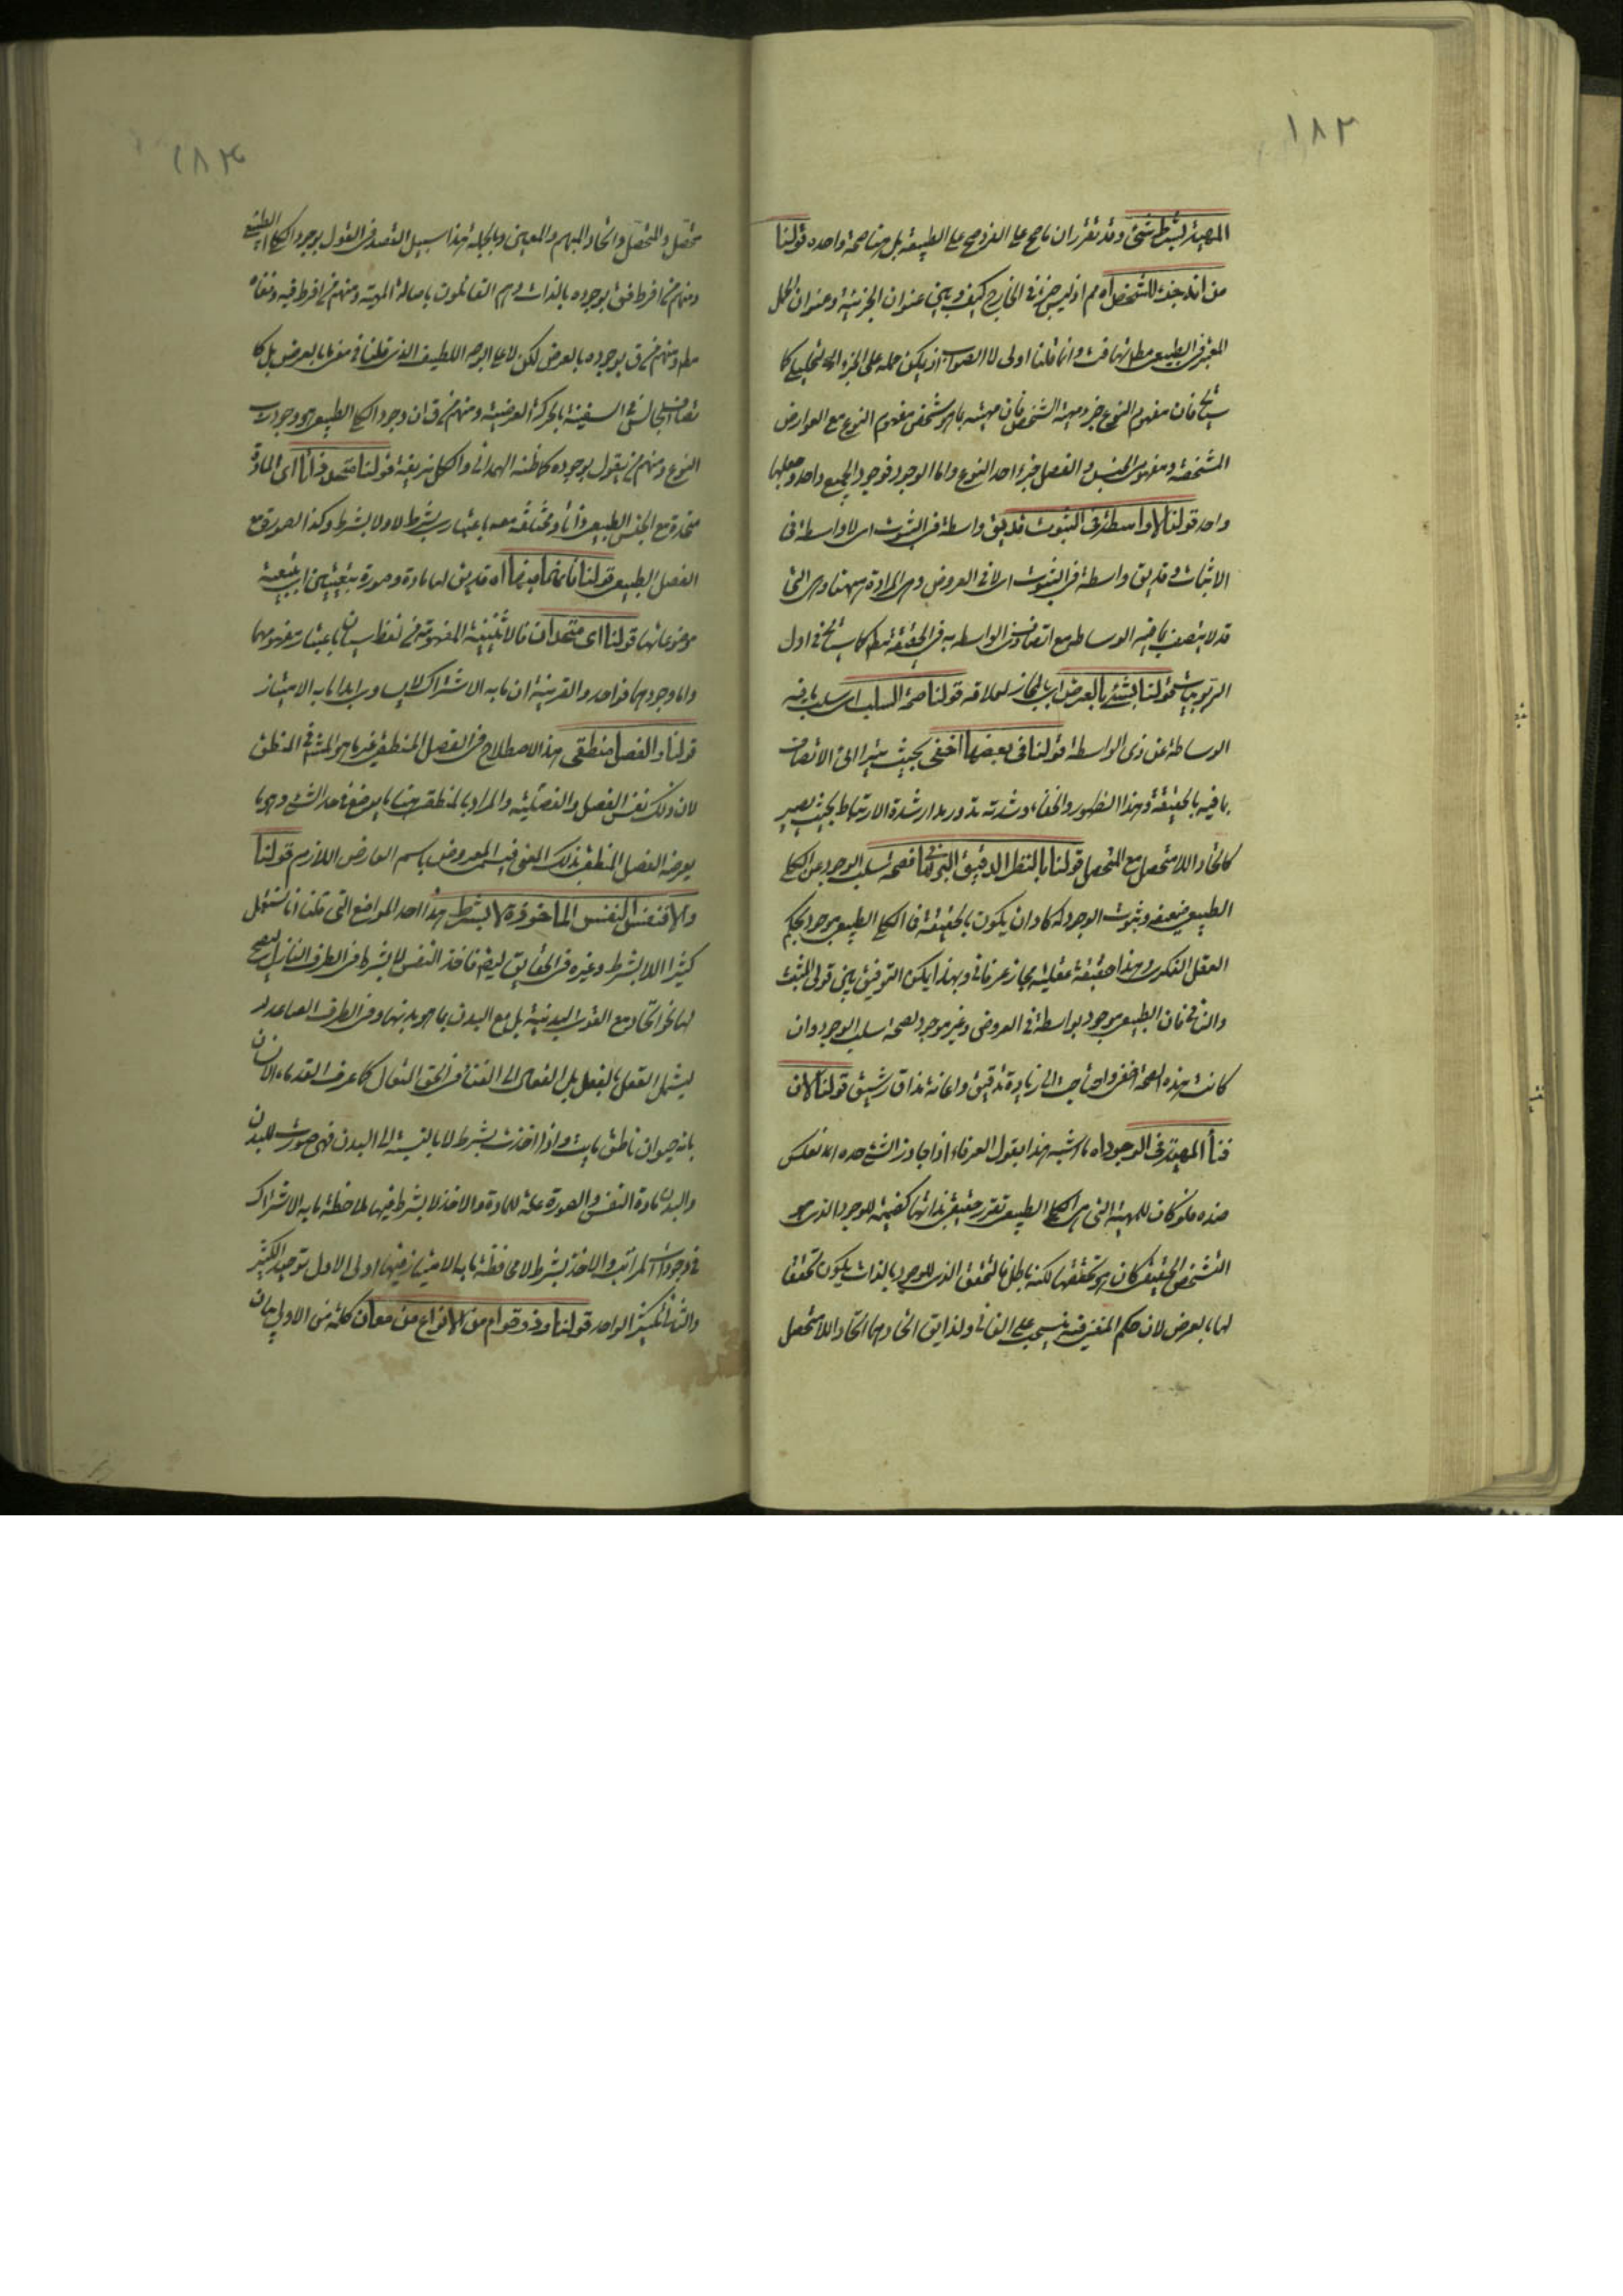 ١٨٢
المهية بشرط شئ وقد تقرر ان ما صح على الفرد صح على الطبيعة بل هنا صحة واحدة قولنا
من انه جزء للشخص اه مم اذ ليس جزء في الخارج كيف وبين عنوان الجزئية وعنوان الحمل
المعتبر في الطبيعي مطلقا تهافت وانما قلنا اولى لا الصواب اذ يمكن حمله على الجزء التحليلي كما
سيأتي فان مفهوم النوع جزء مهية الشخص فان مهيته بما هو شخص مفهوم النوع مع العوارض
المشخصة ومفهوم الجنس والفصل جزءا حد النوع واما الوجود فوجود الجميع واحد وجعلها
واحد قولنا لا واسطة في الثبوت قد يق واسطة في الثبوت اى لا واسطة في
الاثبات وقد يق واسطة في الثبوت اى لا في العروض وهى المرادة ههنا وهى التى
قد لا يتصف بما فيه الوساطة مع اتصاف ذى الواسطة به في الحقيقة مط كما سيأتي في اول
الربوبيات قولنا لشئ بالعرض اى بالمجاز لعلاقة قولنا صحة السلب اى سلب ما فيه
الوساطة عن ذى الواسطة قولنا في بعضها اخفى بحيث يتراءى الاتصاف
بما فيه بالحقيقة وهذا الظهور والخفاء وشدته تدور مدار شدة الارتباط بحيث يصير
كاتحاد اللامتحصل مع المتحصل قولنا بالنظر الدقيق البرهاني فصحة سلب الوجود عن الكلى
الطبيعى ضعيفة وثبوت الوجود له كاد ان يكون بالحقيقة فالكلى الطبيعى موجود بحكم
العقل الفكرى وهذا حقيقة عقلية مجاز عرفاني وبهذا يمكن التوفيق بين قولى المثبت
والنافي فان الطبيعى موجود بواسطة في العروض وغير موجود لصحة سلب الوجود وان
كانت هذه الصحة اخفى واحتاجت الى زيادة تدقيق واعانة مذاق رشيق قولنا لان
فناء المهية في الوجود اه ما اشبه هذا بقول العرفاء اذا جاوز الشئ حده انعكس
ضده فلو كان للمهية التى هى الكلى الطبيعى تقرر حقيقى بذاتها كضميمة للوجود الذى هو
التشخص الحقيقى كان هو تحققها لكنه باطل فالتحقق الذى للوجود بالذات يكون تحققا
لها بالعرض لان حكم المفنى فيه ينسحب على الفاني ولذا يق اتحادهما اتحاد اللامتحصل
١٨٣
محصل والمتحصل واتحاد المبهم والمعين وبالجملة هذا سبيل القصد في القول بوجود الكلى الطبيعى
ومنهم من افرط فق بوجوده بالذات وهم القائلون باصالة المهية ومنهم من افرط فيه ونفاه
مط ومنهم من ق بوجوده بالعرض لكن لا على الوجه اللطيف الذى قلنا في معنى ما بالعرض بل كا
تصاف الجالس في السفينة بالحركة العرضية ومنهم من ق ان وجود الكلى الطبيعى هو وجود رب
النوع ومنهم من يقول بوجوده كما ظنه الهمداني والكل مزيفة قولنا متحد ذاتا اى المادة
متحدة مع الجنس الطبيعى ذاتا ومختلفة معه باعتبارى بشرط لا ولا بشرط وكذا الصورة مع
الفصل الطبيعى قولنا اه قد يق لها مادة وصورة
موضوعاتها قولنا اى متحدان فالاثنينية المفهومة من لفظ سيان باعتبار مفهومهما
واما وجودهما فواحد والقرينة ان ما به الاشتراك لا يساوى ابدا ما به الامتياز
قولنا والفصل منطقى هذا الاصطلاح في الفصل المنطقى غير ما هو المشهور في المنطق
لان ذلك نفس الفصل والفصلية والمراد بالمنطقى هنا ما يوضع في حد الشئ وهو ما
يعرضه الفصل المنطقى بذلك المعنى فيسمى المعروض باسم العارض اللازم قولنا
والا فنفس النفس الماخوذة لا بشرط هذا احد المواضع التى قلنا انا نستعمل
كثيرا اللابشرط وغيره في الحقايق ليضم فاخذ النفس لا بشرط في الطرف النازل ليصح
لها نحو اتحاد مع القوى البدنية بل مع البدن بما هو بدنها وفي الطرف الصاعد
ليشمل العقل بالفعل بل الفعال الى الفناء في الحق المتعال كما عرف القدماء الانسان
بانه حيوان ناطق مايت واذا اخذت بشرط لا بالنسبة الى البدن فهى صورت للبدن
والبدن مادة النفس والصورة علة للمادة والاخذ لا بشرط فيها لملاحظة ما به الاشتراك
في وجودات المراتب والاخذ بشرط لا محافظة ما به الامتياز فيها اولى الاول توحيد الكثير
والثاني تكثير الواحد قولنا وذو قوام من الانواع من معان كلمة من الاولى بيان